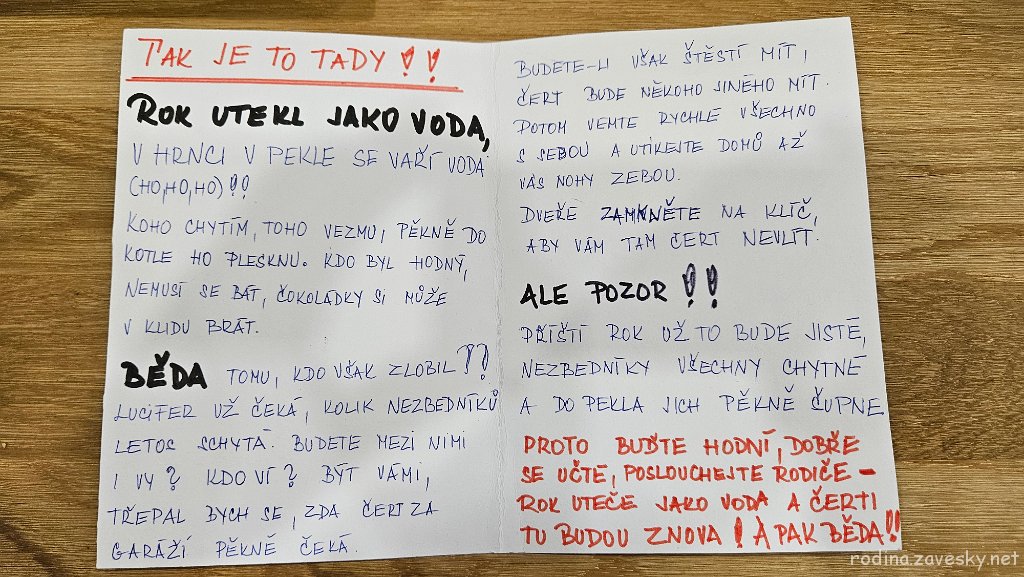 TAK JE TO TADY!!
ROK UTEKL JAKO VODA,
V HRNCI V PEKLE SE VAŘÍ VODA
(HO,HO,HO)!!
KOHO CHYTÍM, TOHO VEZMU, PĚKNĚ DO
KOTLE HO PLESKNU. KDO BYL HODNÝ,
NEMUSÍ SE BÁT, ČOKOLÁDKY SI MŮŽE
V KLIDU BRÁT.
BĚDA TOMU, KDO VŠAK ZLOBIL??
LUCIFER UŽ ČEKÁ, KOLIK NEZBEDNÍKŮ
LETOS SCHYTÁ. BUDETE MEZI NIMI
I VY? KDO VÍ? BÝT VÁMI,
TŘEPAL BYCH SE, ZDA ČERT ZA
GARÁŽÍ PĚKNĚ ČEKÁ.
BUDETE-LI VŠAK ŠTĚSTÍ MÍT,
ČERT BUDE NĚKOHO JINÉHO MÍT.
POTOM VEMTE RYCHLE VŠECHNO
S SEBOU A UTÍKEJTE DOMŮ AŽ
VÁS NOHY ZEBOU.
DVEŘE ZAMKNĚTE NA KLÍČ,
ABY VÁM TAM ČERT NEVLÍT.
ALE POZOR!!
PŘÍŠTÍ ROK UŽ TO BUDE JISTÉ,
NEZBEDNÍKY VŠECHNY CHYTNE
A DO PEKLA JICH PĚKNĚ ČUPNE
PROTO BUĎTE HODNÍ, DOBŘE
SE UČTE, POSLOUCHEJTE RODIČE –
ROK UTEČE JAKO VODA A ČERTI
TU BUDOU ZNOVA! A PAK BĚDA!!
rodina.zavesky.net